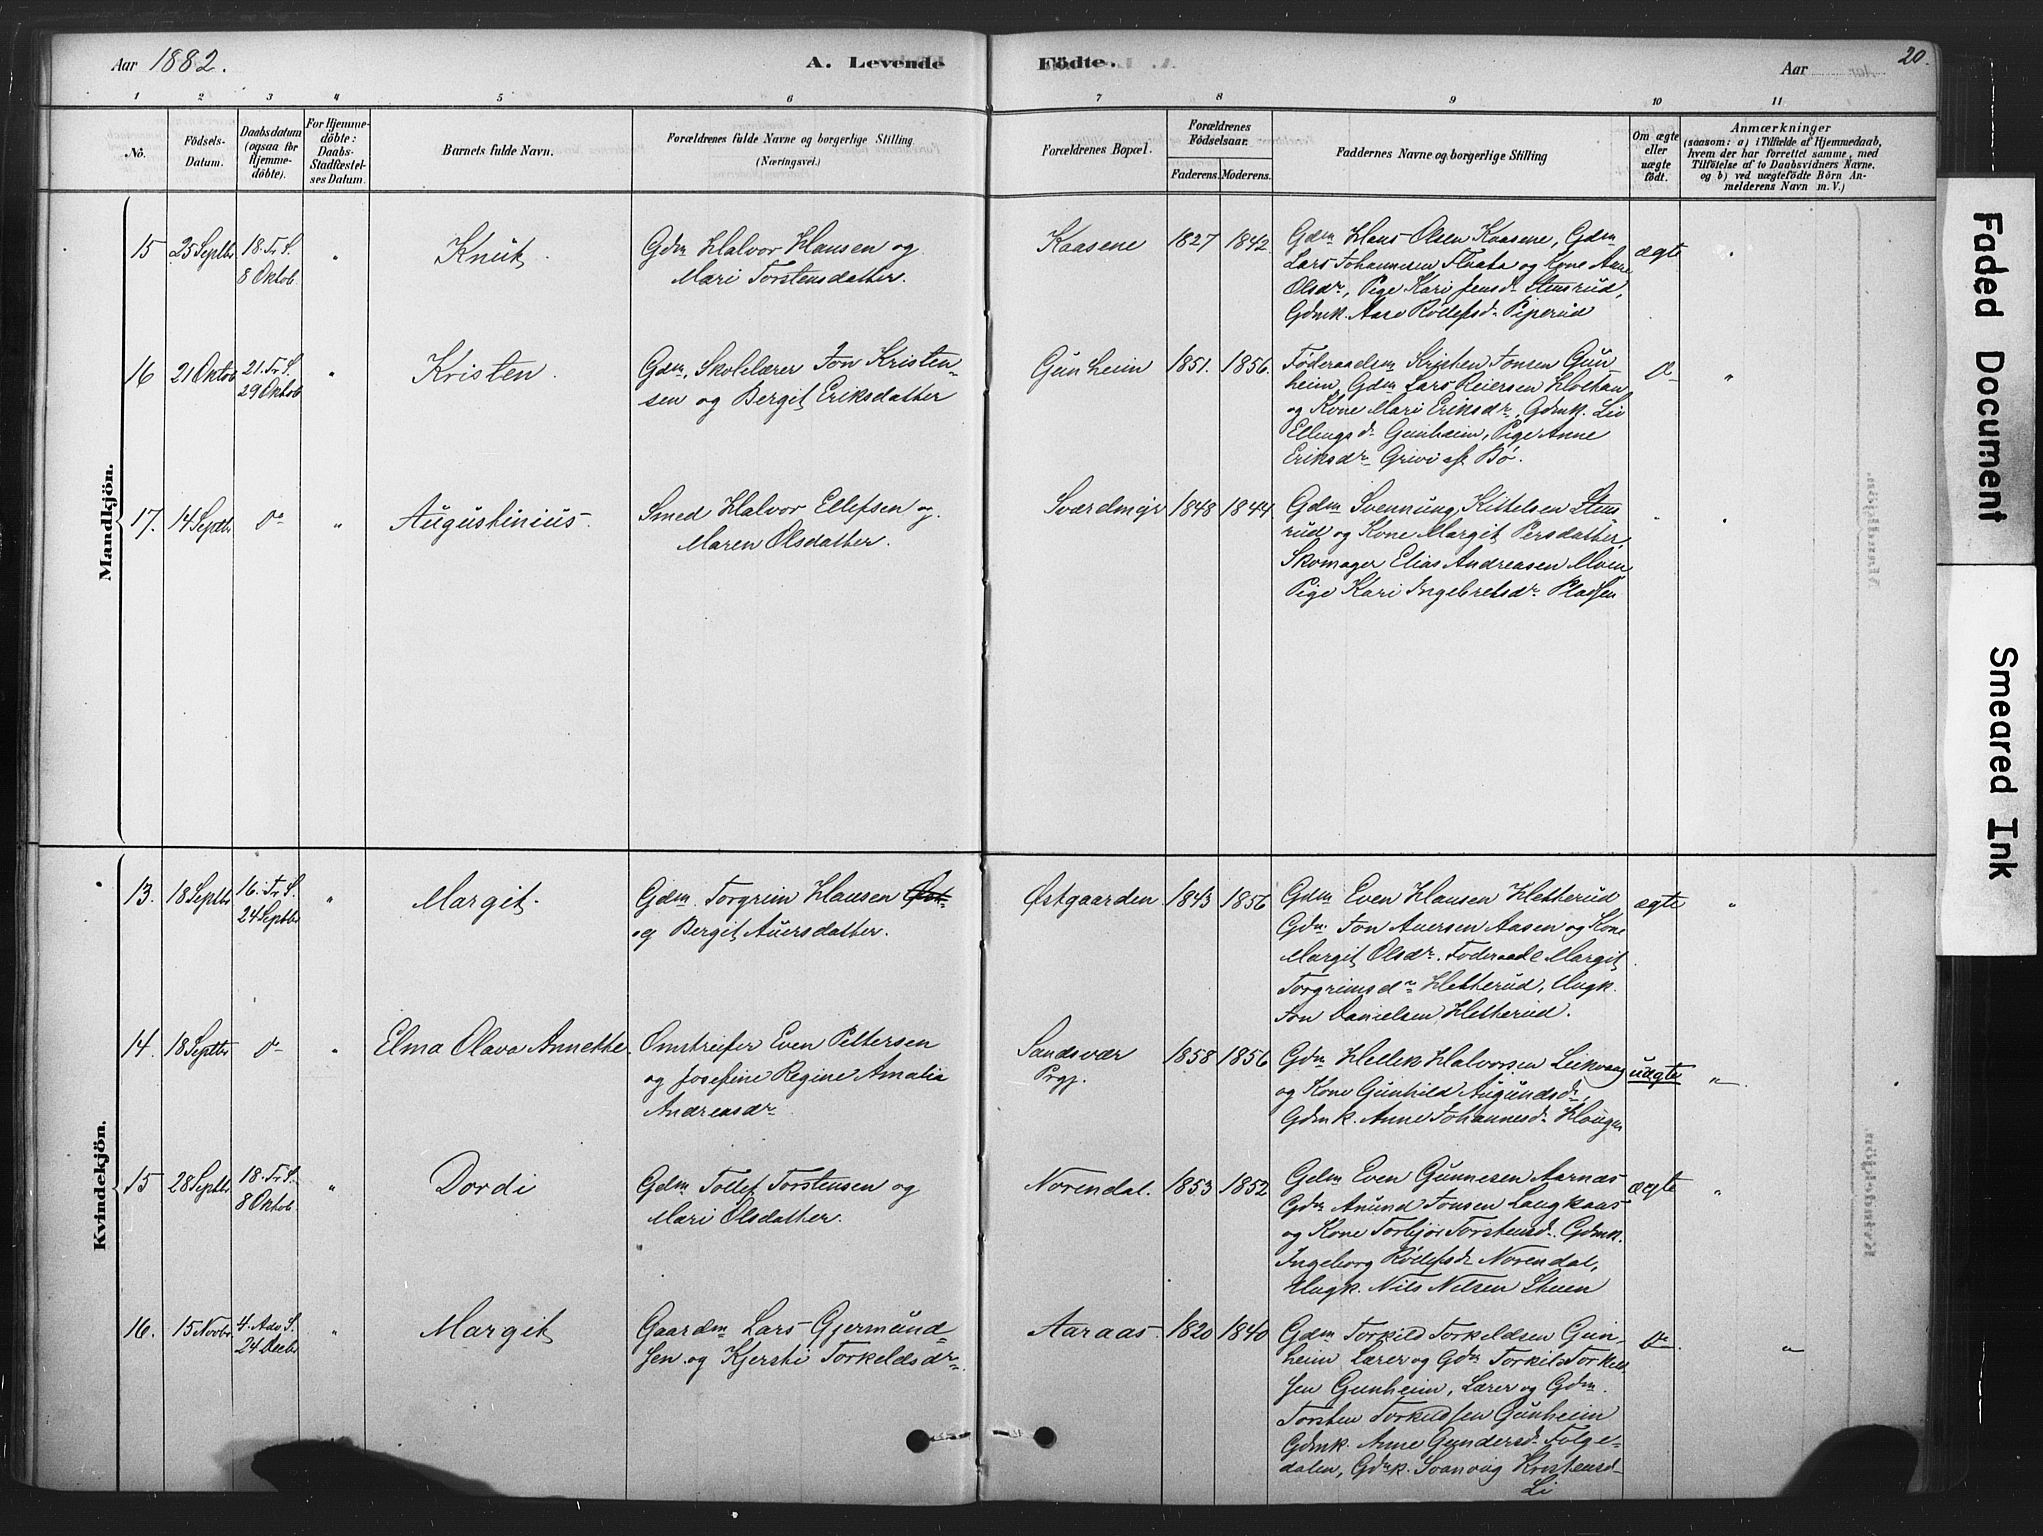 Aar 1882.
A. Levende
Födte.
Aar
20.
1 2 3 4 5 6 7 8 9 10 11
No.
Födsels-
Datum.
Daabsdatum
(ogsaa for
Hjemme-
döbte).
For Hjemme-
döbte:
Daabs-
Stadfæstel-
ses Datum.
Barnets fulde Navn.
Forældrenes fulde Navne og borgerlige Stilling
(Næringsvei.)
Forældrenes Bopæl.
Forældrenes
Födselsaar.
Faderens.
Moderens.
Faddernes Navne og borgerlige Stilling
Om ægte
eller
uægte
födt.
Anmærkninger
(saasom: a) i Tilfælde af Hjemmedaab,
hvem der har forrettet samme, med
Tilföielse af to Daabsvidners Navne.
og b) ved uægtefödte Börn An-
melderens Navn m. V.)
Mandkjön.
15
25 Septbr
18. Tr. S.
8 Oktob.
"
Knut.
Gdm Halvor Hansen og
Mari Torstensdatter.
Kaasene
1827
1842
Gdm Hans Olsen Kaasene, Gdm
Lars Johannesen Flaata og Kone Anne
Olsdr, Pige Kari Jensd. Stensrud,
Gdmk. Aase Rollefsd. Piperud
ægte
"
16
21 Oktob
21. Tr. S.
29 Oktob
"
Kristen.
Gdm, Skolelærer Jon Kristen-
sen og Bergit Eriksdatter
Gunheim
1851.
1856.
Föderaadsm Kristen Jonsen Gun-
heim, Gdm Lars Reiersen
og Kone Mari Eriksdr, Gdmk. Liv
Ellingsd. Gunheim, Pige Anne
Eriksdr Grivi af Bö.
Do
"
17.
14 Septbr
Do
"
Augustinius.
Smed Halvor Ellefsen og
Maren Olsdatter.
Sværdmyr
1848
1844
Gdm Svennung Kittelsen Stens
rud og Kone Margit Persdatter,
Skomager Elias Andreasen Moen
Pige Kari Ingebretsdr Pladsen
"
"
Kvindekjön.
13.
18 Septbr
16. Tr. S.
24 Septbr
"
Margit.
Gdm. Torgrim Hansen
og Bergit Auersdatter.
Østgaarden
1843
1856
Gdm Even Hansen Hetterud
Gdm Jon Auersen Aasen og Kone
Margit Olsdr. Föderaadk Margit
Torgrimsdr Hetterud, Ungk.
Jon Danielsen Hetterud.
ægte
"
14.
18 Septbr
Do
"
Elma Olava Annette
Omstreifer Even Pettersen
og Josefine Regine Amalia
Andreasdr
Sandsvær
Prgj.
1858
1856
Gdm Hellek Halvorsen Leikvang
og Kone Gunhild Augundsdr,
Gdmk. Anne Johannesd. Hougen
uægte
"
15
28 Septbr
18. Tr. S.
8 Oktob
"
Dordi
Gdm Tollef Torstensen og
Mari Olsdatter.
Norendal.
1853
1852
Gdm Even Gunnesen Aarnæs
Gdm Anund Jonsen Langkaas
og Kone Torbjør Torstensd. Gdmk.
Ingeborg Rollefsd. Norendal,
Ungk. Nils Nilsen Stuen
ægte
"
16.
15 Novbr
4. Adv. S.
24 Decbr
"
Margit
Gaardm Lars Gjermund-
sen og Kjersti Torkeldsdr.
Aaraas.
1820
1840
Gdm Torkild Torkeldsen Gun-
heim Lærer og Gdm Torkil Torkild-
sen Gunheim, Lærer og Gdm.
Torsten Torkildsen Gunheim
Gdmk. Anne Gundersd. Folge-
dalen, Gdmk. Svanaug Kristensd.
Li
Do.
"
Faded Document
Smeared Ink